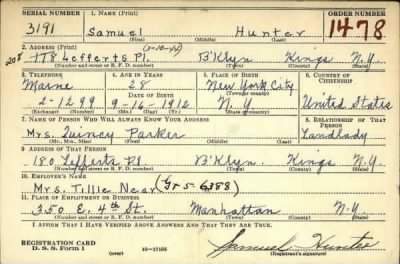 SERIAL NUMBER 1. NAME (Print) ORDER NUMBER
3191 Samuel Hunter 1478
(First) (Middle) (Last)
2. ADDRESS (Print) (3-10-44)
208 178 Lefferts Pl. B'Klyn Kings N.Y.
(Number and street or R. F. D. number) (Town) (County) (State)
3. TELEPHONE 4. AGE IN YEARS 5. PLACE OF BIRTH 6. COUNTRY OF CITIZENSHIP
Maine 28 New York City
DATE OF BIRTH (Town or county)
2-1299 9-16-1912 N.Y. United States
(Exchange) (No.) (Mo.) (Day) (Yr.) (State or country)
7. NAME OF PERSON WHO WILL ALWAYS KNOW YOUR ADDRESS 8. RELATIONSHIP OF THAT PERSON
Mrs. Quincy Parker Landlady
(Mr., Mrs., Miss) (First) (Middle) (Last)
9. ADDRESS OF THAT PERSON
180 Lefferts Pl. B'Klyn. Kings N.Y.
(Number and street or R. F. D. number) (Town) (County) (State)
10. EMPLOYER'S NAME
Mrs. Tillie Near (Gr 5-6388)
11. PLACE OF EMPLOYMENT OR BUSINESS
350 E. 4th St. Manhattan N.Y.
(Number and street or R. F. D. number) (Town) (County) (State)
I AFFIRM THAT I HAVE VERIFIED ABOVE ANSWERS AND THAT THEY ARE TRUE.
REGISTRATION CARD
D. S. S. Form 1 16-17105 Samuel Hunter
(Registrant's signature)